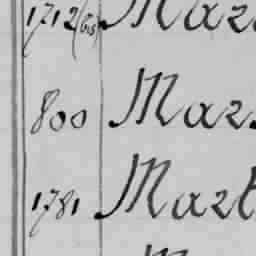 1712 (bis) Maz
800 Maz
1781 Mazt